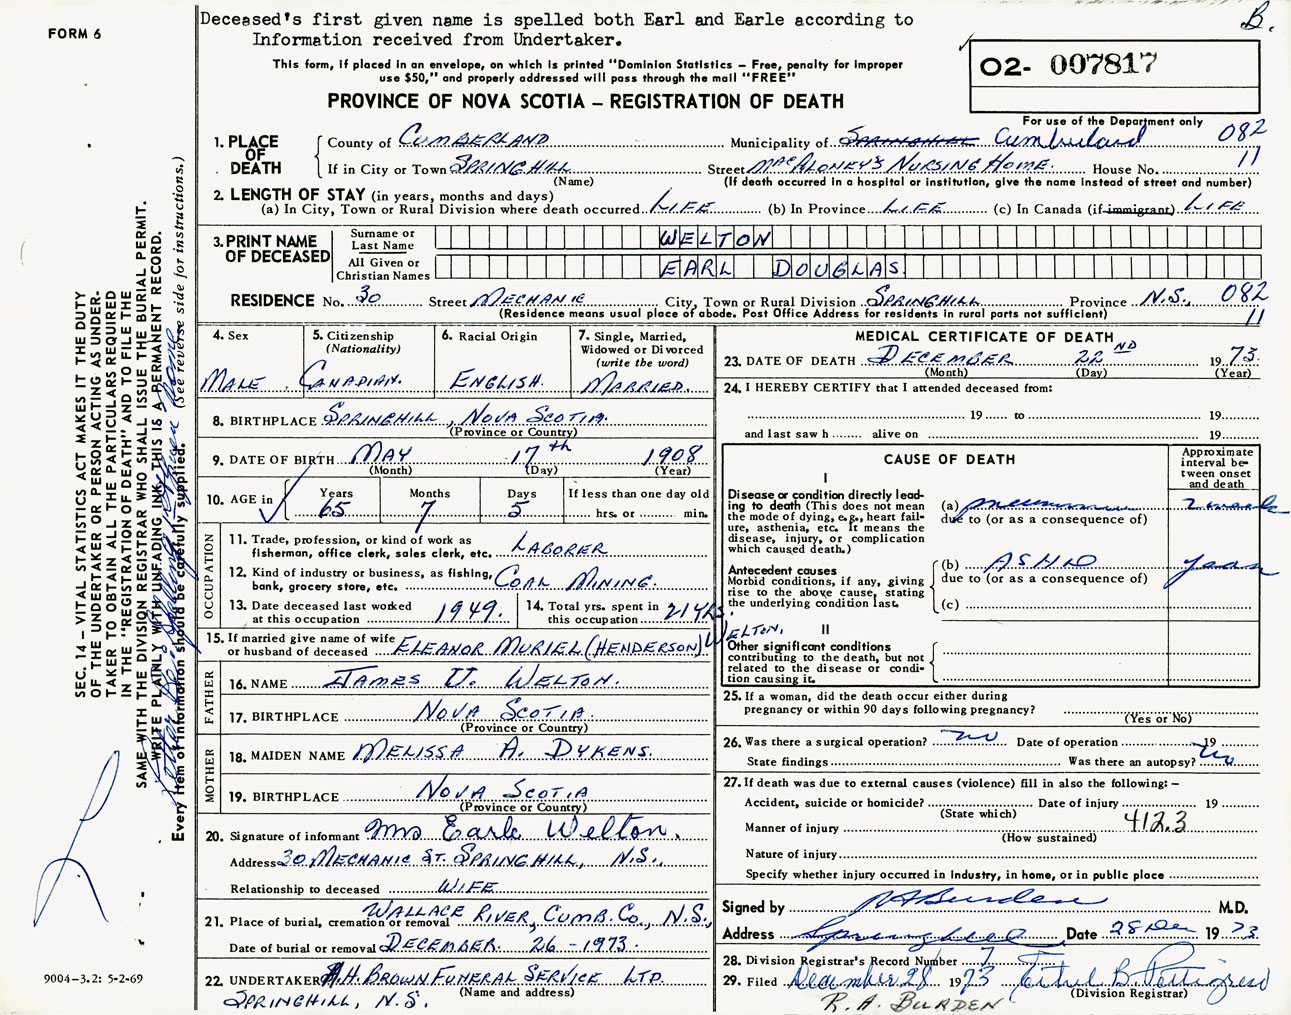 FORM 6
Deceased's first given name is spelled both Earl and Earle according to
Information received from Undertaker.
B.
This form, if placed in an envelope, on which is printed "Dominion Statistics – Free, penalty for improper
use $50," and properly addressed will pass through the mail "FREE"
02- 007817
PROVINCE OF NOVA SCOTIA – REGISTRATION OF DEATH
For use of the Department only
1. PLACE OF DEATH
County of CUMBERLAND Municipality of SPRINGHILL Cumberland 082
If in City or Town SPRINGHILL Street MACALONEY'S NURSING HOME. House No. 11
(Name) (If death occurred in a hospital or institution, give the name instead of street and number)
2. LENGTH OF STAY (in years, months and days)
(a) In City, Town or Rural Division where death occurred LIFE (b) In Province LIFE (c) In Canada (if immigrant) LIFE
3. PRINT NAME OF DECEASED
Surname or Last Name WELTON
All Given or Christian Names EARL DOUGLAS
RESIDENCE No. 30 Street MECHANIC City, Town or Rural Division SPRINGHILL Province N.S. 082
(Residence means usual place of abode. Post Office Address for residents in rural parts not sufficient) 11
4. Sex
MALE
5. Citizenship
(Nationality)
CANADIAN.
6. Racial Origin
ENGLISH.
7. Single, Married,
Widowed or Divorced
(write the word)
MARRIED.
8. BIRTHPLACE SPRINGHILL, NOVA SCOTIA.
(Province or Country)
9. DATE OF BIRTH MAY 17th 1908
(Month) (Day) (Year)
10. AGE in
Years Months Days If less than one day old
65 7 5 hrs. or min.
OCCUPATION
11. Trade, profession, or kind of work as
fisherman, office clerk, sales clerk, etc. LABORER
12. Kind of industry or business, as fishing,
bank, grocery store, etc. COAL MINING.
13. Date deceased last worked
at this occupation 1949.
14. Total yrs. spent in
this occupation 21 YRS.
15. If married give name of wife
or husband of deceased ELEANOR MURIEL (HENDERSON) WELTON.
FATHER
16. NAME JAMES U. WELTON.
17. BIRTHPLACE NOVA SCOTIA.
(Province or Country)
MOTHER
18. MAIDEN NAME MELISSA A. DYKENS.
19. BIRTHPLACE NOVA SCOTIA
(Province or Country)
20. Signature of informant Mrs Earle Welton.
Address 30 MECHANIC ST. SPRINGHILL, N.S.
Relationship to deceased WIFE
21. Place of burial, cremation or removal WALLACE RIVER, CUMB. CO., N.S.,
Date of burial or removal DECEMBER 26 - 1973.
22. UNDERTAKER A.H. BROWN FUNERAL SERVICE LTD.
(Name and address)
SPRINGHILL, N.S.
MEDICAL CERTIFICATE OF DEATH
23. DATE OF DEATH DECEMBER 22ND 1973.
(Month) (Day) (Year)
24. I HEREBY CERTIFY that I attended deceased from:
19 to 19
and last saw h alive on 19
CAUSE OF DEATH
Approximate
interval be-
tween onset
and death
I
Disease or condition directly lead-
ing to death (This does not mean
the mode of dying, e.g., heart fail-
ure, asthenia, etc. It means the
disease, injury, or complication
which caused death.)
(a) pneumonia 2 weeks
due to (or as a consequence of)
Antecedent causes
Morbid conditions, if any, giving
rise to the above cause, stating
the underlying condition last.
(b) ASHD years
due to (or as a consequence of)
(c)
II
Other significant conditions
contributing to the death, but not
related to the disease or condi-
tion causing it.
25. If a woman, did the death occur either during
pregnancy or within 90 days following pregnancy?
(Yes or No)
26. Was there a surgical operation? no Date of operation 19
State findings Was there an autopsy? no
27. If death was due to external causes (violence) fill in also the following: –
Accident, suicide or homicide? Date of injury 19
(State which)
Manner of injury 412.3
(How sustained)
Nature of injury
Specify whether injury occurred in industry, in home, or in public place
Signed by RABurden M.D.
Address Springhill Date 28 Dec 1973
28. Division Registrar's Record Number 7
29. Filed December 28 1973 Ethel B. Pettigrew
(Division Registrar)
R. A. BURDEN
SEC. 14 – VITAL STATISTICS ACT MAKES IT THE DUTY
OF THE UNDERTAKER OR PERSON ACTING AS UNDER-
TAKER TO OBTAIN ALL THE PARTICULARS REQUIRED
IN THE "REGISTRATION OF DEATH" AND TO FILE THE
SAME WITH THE DIVISION REGISTRAR WHO SHALL ISSUE THE BURIAL PERMIT.
WRITE PLAINLY WITH UNFADING INK, THIS IS A PERMANENT RECORD.
Every item of information should be carefully supplied. (See reverse side for instructions.)
9004–3.2: 5-2-69